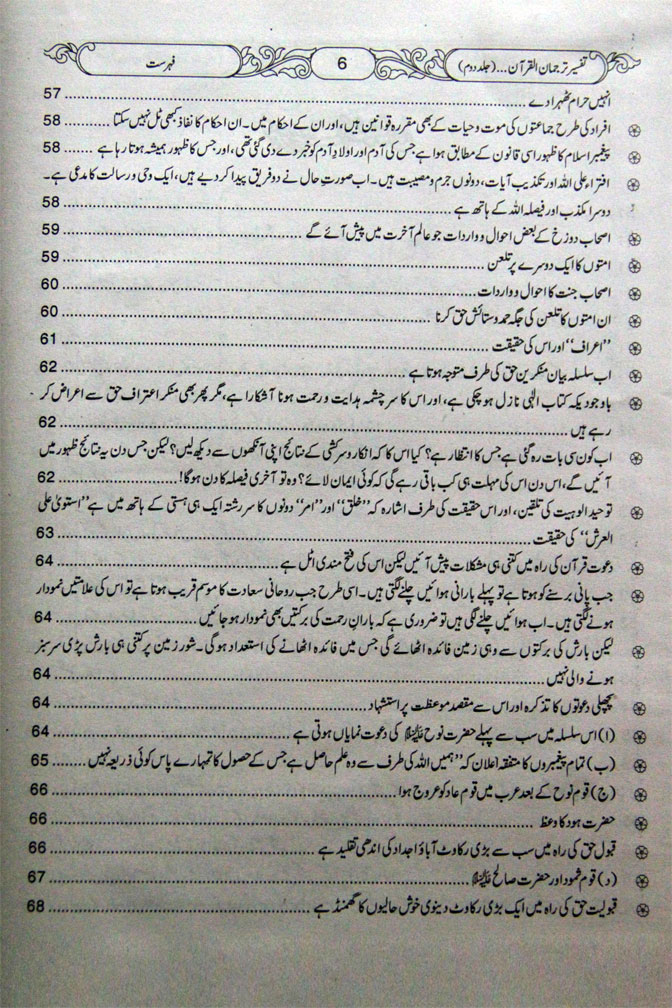 تفسیر ترجمان القرآن...(جلد دوم) 6 فہرست
انہیں حرام ٹھہرا دے ........ 57
افراد کی طرح جماعتوں کی موت و حیات کے بھی مقررہ قوانین ہیں، اور ان کے احکام میں۔ ان احکام کا نفاذ کبھی ٹل نہیں سکتا ........ 58
پیغمبر اسلام کا ظہور اسی قانون کے مطابق ہوا ہے جس کی آدم اور اولادِ آدم کو خبر دے دی گئی تھی، اور جس کا ظہور ہمیشہ ہوتا رہا ہے ........ 58
افتراء علی اللہ اور تکذیب آیات، دونوں جرم و مصیبت ہیں۔ اب صورتِ حال نے دو فریق پیدا کر دیے ہیں، ایک وحی و رسالت کا مدعی ہے۔
دوسرا مکذب اور فیصلہ اللہ کے ہاتھ ہے ........ 58
اصحاب دوزخ کے بعض احوال و واردات جو عالم آخرت میں پیش آئے گے ........ 59
امتوں کا ایک دوسرے پر تلعن ........ 59
اصحاب جنت کا احوال و واردات ........ 60
ان امتوں کا تلعن کی جگہ حمد و ستائش حق کرنا ........ 60
”اعراف“ اور اس کی حقیقت ........ 61
اب سلسلہ بیان منکرین حق کی طرف متوجہ ہوتا ہے ........ 62
باوجودیکہ کتاب الٰہی نازل ہو چکی ہے، اور اس کا سرچشمہ ہدایت و رحمت ہونا آشکارا ہے، مگر پھر بھی منکر اعتراف حق سے اعراض کر
رہے ہیں ........ 62
اب کون سی بات رہ گئی ہے جس کا انتظار ہے؟ کیا اس کا کہ انکار و سرکشی کے نتائج اپنی آنکھوں سے دیکھ لیں؟ لیکن جس دن یہ نتائج ظہور میں
آئیں گے، اس دن اس کی مہلت ہی کب باقی رہے گی کہ کوئی ایمان لائے؟ وہ تو آخری فیصلہ کا دن ہوگا! ........ 62
توحید الوہیت کی تلقین، اور اس حقیقت کی طرف اشارہ کہ ”خلق“ اور ”امر“ دونوں کا سررشتہ ایک ہی ہستی کے ہاتھ میں ہے ”استویٰ علی
العرش“ کی حقیقت ........ 63
دعوت قرآن کی راہ میں کتنی ہی مشکلات پیش آئیں لیکن اس کی فتح مندی اٹل ہے ........ 64
جب پانی برسنے کو ہوتا ہے تو پہلے بارانی ہوائیں چلنے لگتی ہیں۔ اسی طرح جب روحانی سعادت کا موسم قریب ہوتا ہے تو اس کی علامتیں نمودار
ہونے لگتی ہیں۔ اب ہوائیں چلنے لگی ہیں تو ضروری ہے کہ بارانِ رحمت کی برکتیں بھی نمودار ہو جائیں ........ 64
لیکن بارش کی برکتوں سے وہی زمین فائدہ اٹھائے گی جس میں فائدہ اٹھانے کی استعداد ہوگی۔ شور زمین پر کتنی ہی بارش پڑی سرسبز
ہونے والی نہیں ........ 64
پچھلی دعوتوں کا تذکرہ اور اس سے مقصد موعظت پر استشہاد ........ 64
(ا) اس سلسلہ میں سب سے پہلے حضرت نوح علیہ السلام کی دعوت نمایاں ہوتی ہے ........ 64
(ب) تمام پیغمبروں کا متفقہ اعلان کہ ”ہمیں اللہ کی طرف سے وہ علم حاصل ہے جس کے حصول کا تمہارے پاس کوئی ذریعہ نہیں ........ 65
(ج) قوم نوح کے بعد عرب میں قوم عاد کو عروج ہوا ........ 66
حضرت ہود کا وعظ ........ 66
قبول حق کی راہ میں سب سے بڑی رکاوٹ آباؤ اجداد کی اندھی تقلید ہے ........ 66
(د) قوم ثمود اور حضرت صالح علیہ السلام ........ 67
قبولیت حق کی راہ میں ایک بڑی رکاوٹ دینوی خوش حالیوں کا گھمنڈ ہے ........ 68